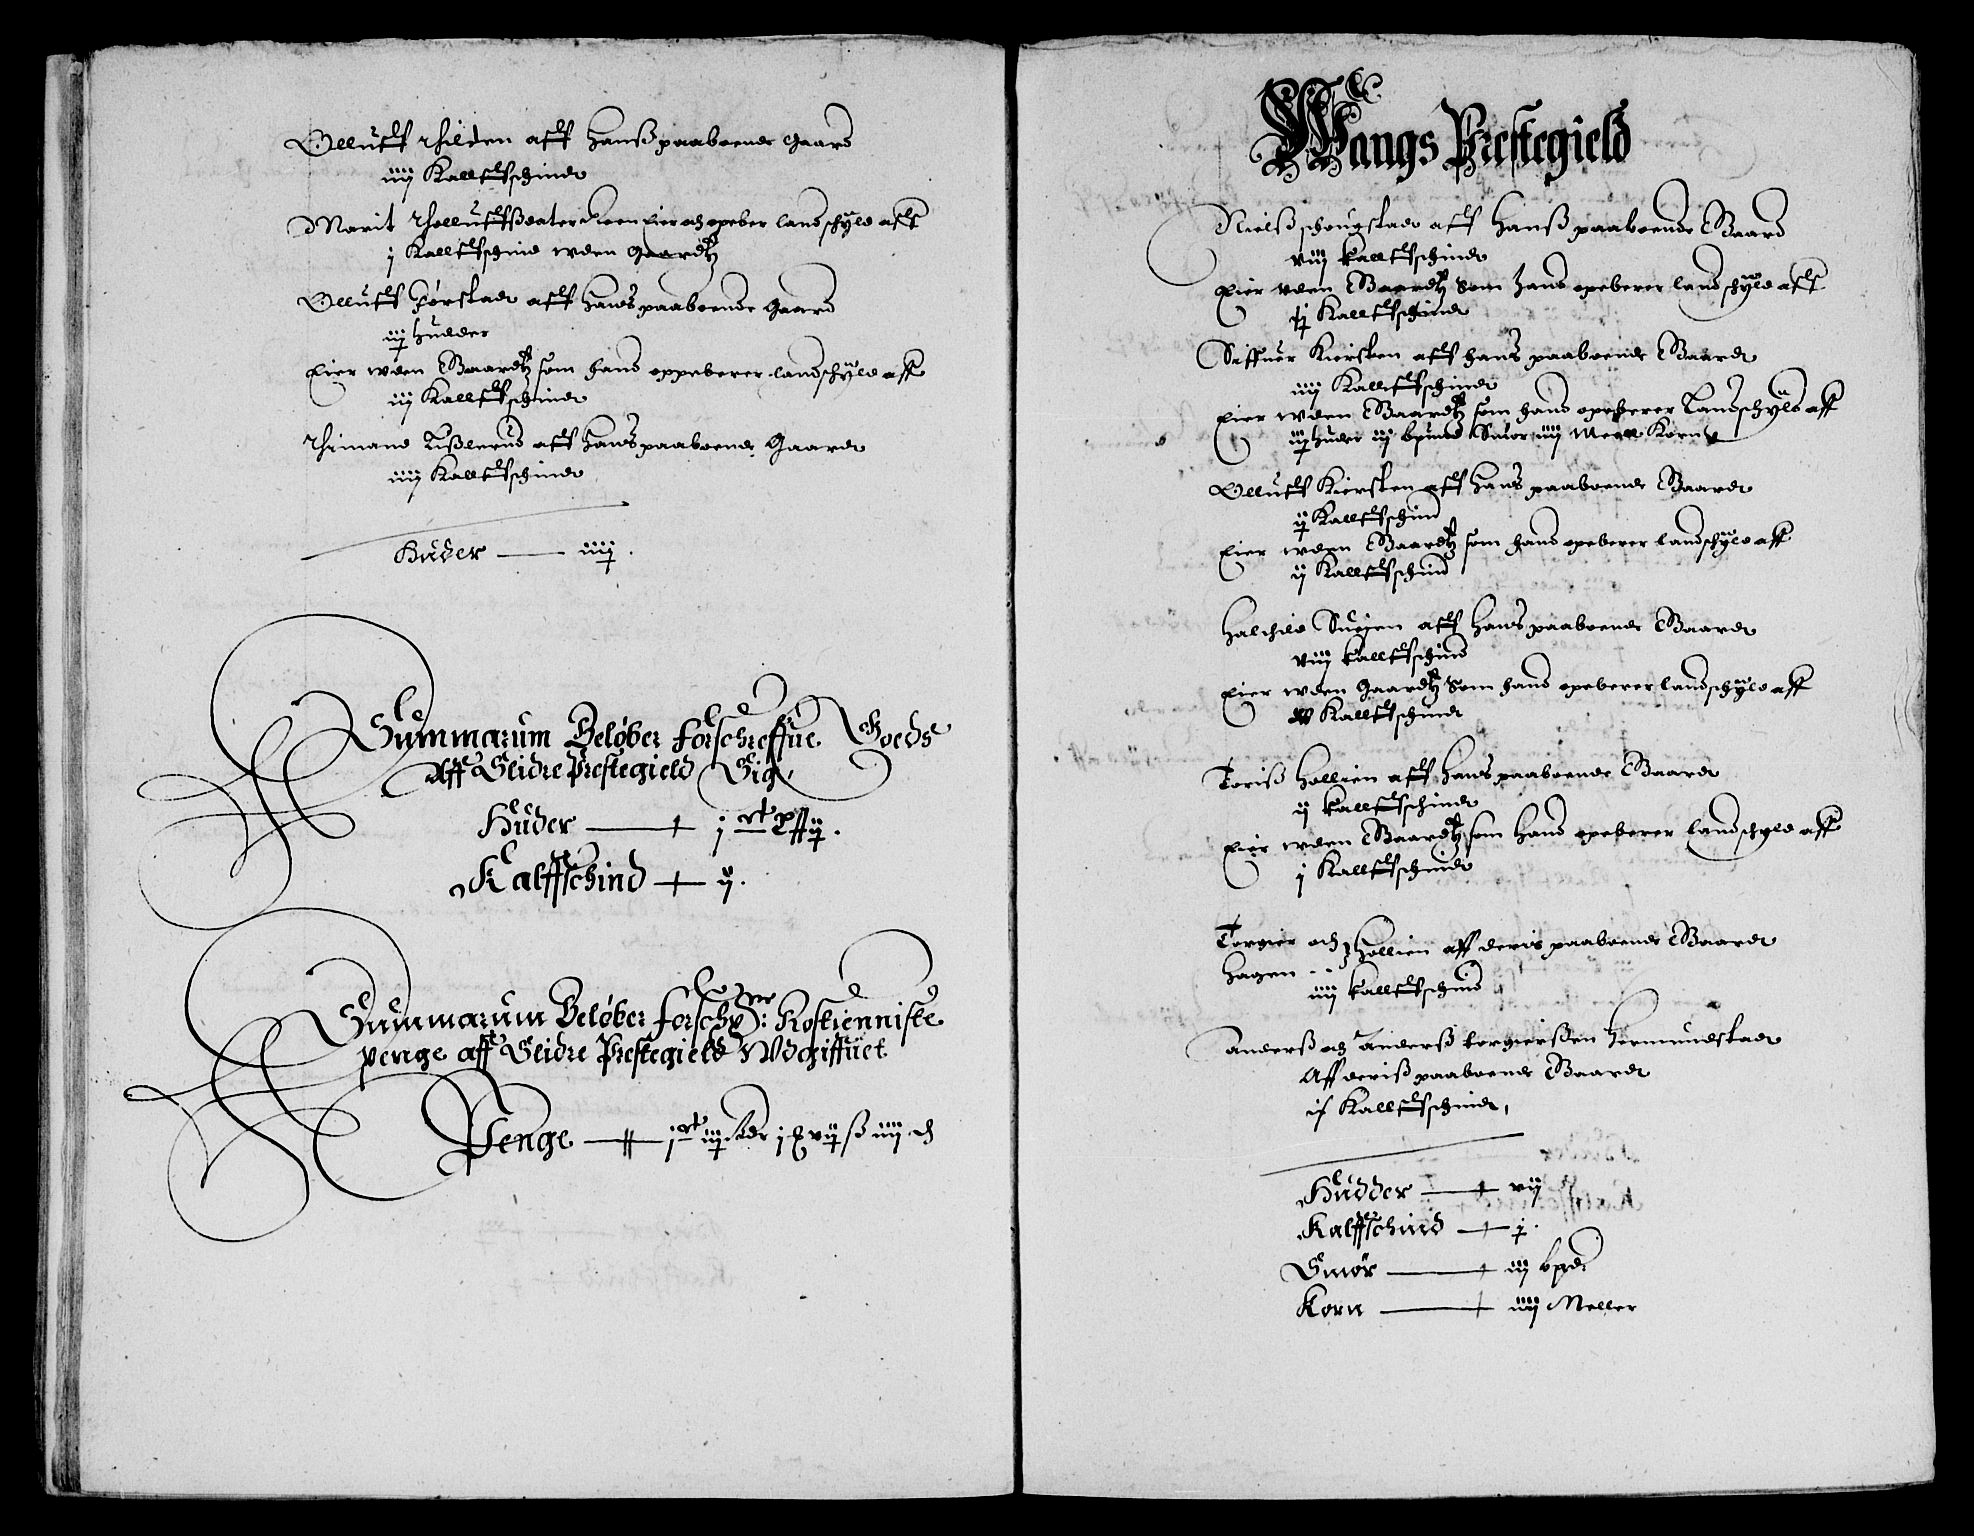 Olluff Hilden aff Hanß paaboende Gaard
iiij Kalffschinde
Marit Tholluffsdaater Roen Eier och opeber landschyld aff
j Kalffschind wden Gaardtz
Olluff Førstad aff Hans paaboende Gaard
iij Hudder
Eier wden Gaardtz som hand oppeberer landschyld aff
iij Kalffschinde
Thimand Lißlerud aff Hans paaboende Gaardt
iiij Kalffschinde
Huder — iiij.
Summarum Beløber Forschreffue Goeds
Aff Slidre Prestegield Sig
Huder — j
Kalffschind — ij.
Summarum Beløber forsch: Rostienniste
penge aff Slidre Prestegield Wdgiffuet
Penge —
Wangs Prestegield
Nielß schougstad aff Hanß paaboende Gaard
viij Kalffschinde
Eier vden Gaardtz som hand opeberer landschyld aff
Kalffschinde
Siffuer Kiersten aff hans paaboende Gaardt
iiij Kalffschinde
Eier wden Gaardtz som hand opeberer Landschyld aff
iij huder iij bpund Smør iiij Meller Korn
Olluff Kiersten aff Hans paaboende Gaardt
ij Kalffschind
Eier wden Gaardtz som hand opeberer landschyld aff
ij Kalffschind
Halchild Suejen aff Hans paaboende Gaardt
viij Kalffschind
Eier wden Gaardtz som hand opeberer landschyld aff
Kalffschinde
Toriß Hollien aff Hans paaboende Gaardt
ij Kalffschinde
Eier wden Gaardtz som Hand opeberer landschyld aff
j Kalffschinde
Torgier och Hollien aff deris paaboende Gaardt
Hagen
iiij Kalffschind
Anderß och Anderß torgierßen Hermundstad
Aff deriß paaboende Gaardt
Kalffschinde
Hudder — vij
Kalffschind — j.
Smør — iij bpd
Korn — iiij Meller